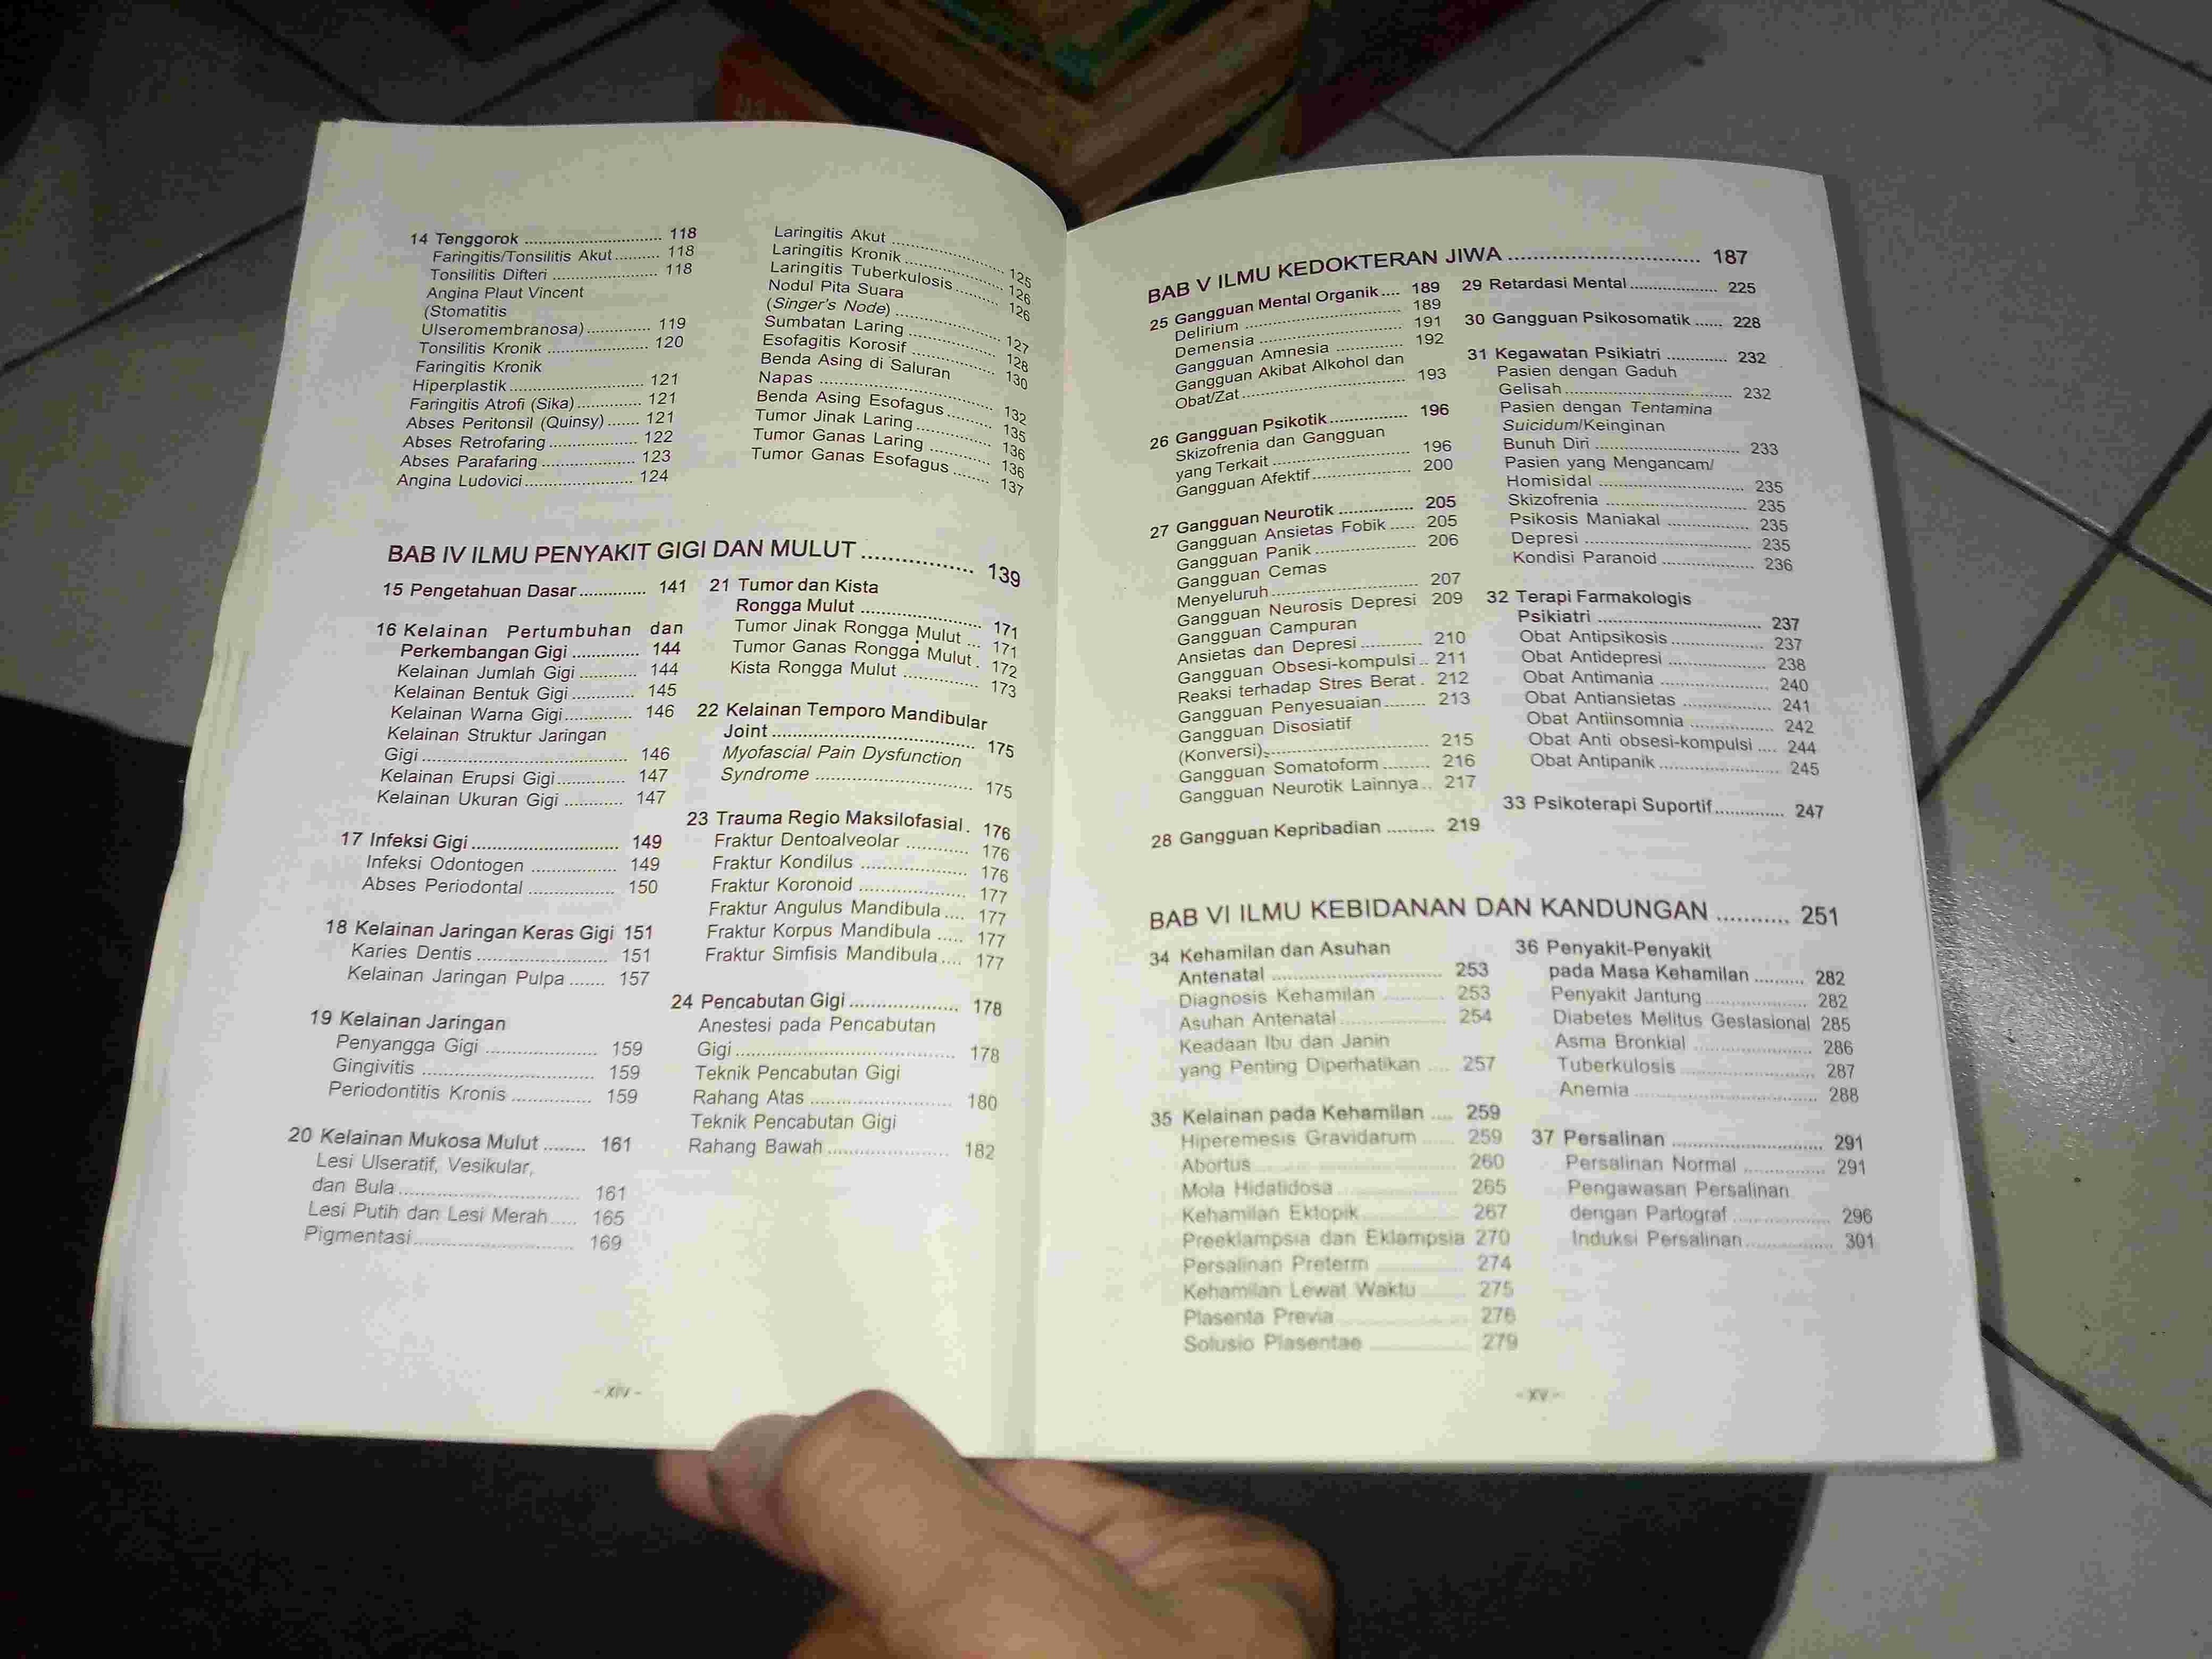 14 Tenggorok ............................. 118
Faringitis/Tonsilitis Akut .......... 118
Tonsilitis Difteri ....................... 118
Angina Plaut Vincent
(Stomatitis
Ulseromembranosa) .............. 119
Tonsilitis Kronik ...................... 120
Faringitis Kronik
Hiperplastik ............................. 121
Faringitis Atrofi (Sika) .............. 121
Abses Peritonsil (Quinsy) ....... 121
Abses Retrofaring ................... 122
Abses Parafaring .................... 123
Angina Ludovici ....................... 124
Laringitis Akut ........................ 125
Laringitis Kronik ..................... 126
Laringitis Tuberkulosis ......... 126
Nodul Pita Suara
(Singer's Node) ...................... 127
Sumbatan Laring ................... 128
Esofagitis Korosif .................. 130
Benda Asing di Saluran
Napas ..................................... 132
Benda Asing Esofagus .......... 135
Tumor Jinak Laring ................ 136
Tumor Ganas Laring ............. 136
Tumor Ganas Esofagus ........ 137
BAB IV ILMU PENYAKIT GIGI DAN MULUT ................ 139
15 Pengetahuan Dasar .............. 141
16 Kelainan Pertumbuhan dan
Perkembangan Gigi .............. 144
Kelainan Jumlah Gigi ............ 144
Kelainan Bentuk Gigi ............. 145
Kelainan Warna Gigi .............. 146
Kelainan Struktur Jaringan
Gigi .......................................... 146
Kelainan Erupsi Gigi .............. 147
Kelainan Ukuran Gigi ............ 147
17 Infeksi Gigi ............................. 149
Infeksi Odontogen ................. 149
Abses Periodontal ................. 150
18 Kelainan Jaringan Keras Gigi 151
Karies Dentis .......................... 151
Kelainan Jaringan Pulpa ....... 157
19 Kelainan Jaringan
Penyangga Gigi ...................... 159
Gingivitis ................................. 159
Periodontitis Kronis ............... 159
20 Kelainan Mukosa Mulut ........ 161
Lesi Ulseratif, Vesikular,
dan Bula .................................. 161
Lesi Putih dan Lesi Merah ..... 165
Pigmentasi .............................. 169
21 Tumor dan Kista
Rongga Mulut ........................ 171
Tumor Jinak Rongga Mulut ... 171
Tumor Ganas Rongga Mulut . 172
Kista Rongga Mulut .............. 173
22 Kelainan Temporo Mandibular
Joint ........................................ 175
Myofascial Pain Dysfunction
Syndrome ............................... 175
23 Trauma Regio Maksilofasial . 176
Fraktur Dentoalveolar ........... 176
Fraktur Kondilus .................... 176
Fraktur Koronoid .................... 177
Fraktur Angulus Mandibula .... 177
Fraktur Korpus Mandibula ..... 177
Fraktur Simfisis Mandibula .... 177
24 Pencabutan Gigi .................... 178
Anestesi pada Pencabutan
Gigi .......................................... 178
Teknik Pencabutan Gigi
Rahang Atas .......................... 180
Teknik Pencabutan Gigi
Rahang Bawah ...................... 182
- xiv -
BAB V ILMU KEDOKTERAN JIWA .............................. 187
25 Gangguan Mental Organik .... 189
Delirium .................................. 189
Demensia ............................... 191
Gangguan Amnesia .............. 192
Gangguan Akibat Alkohol dan
Obat/Zat .................................. 193
26 Gangguan Psikotik ................ 196
Skizofrenia dan Gangguan
yang Terkait ............................ 196
Gangguan Afektif .................... 200
27 Gangguan Neurotik ............... 205
Gangguan Ansietas Fobik ..... 205
Gangguan Panik ..................... 206
Gangguan Cemas
Menyeluruh ............................. 207
Gangguan Neurosis Depresi 209
Gangguan Campuran
Ansietas dan Depresi ............ 210
Gangguan Obsesi-kompulsi .. 211
Reaksi terhadap Stres Berat . 212
Gangguan Penyesuaian ........ 213
Gangguan Disosiatif
(Konversi) ................................ 215
Gangguan Somatoform ......... 216
Gangguan Neurotik Lainnya .. 217
28 Gangguan Kepribadian ......... 219
29 Retardasi Mental .................. 225
30 Gangguan Psikosomatik ...... 228
31 Kegawatan Psikiatri ............ 232
Pasien dengan Gaduh
Gelisah ................................... 232
Pasien dengan Tentamina
Suicidum/Keinginan
Bunuh Diri .............................. 233
Pasien yang Mengancam/
Homisidal ............................... 235
Skizofrenia ............................. 235
Psikosis Maniakal ................. 235
Depresi ................................... 235
Kondisi Paranoid ................... 236
32 Terapi Farmakologis
Psikiatri .................................. 237
Obat Antipsikosis ................... 237
Obat Antidepresi .................... 238
Obat Antimania ...................... 240
Obat Antiansietas ................... 241
Obat Antiinsomnia ................. 242
Obat Anti obsesi-kompulsi .... 244
Obat Antipanik ........................ 245
33 Psikoterapi Suportif .............. 247
BAB VI ILMU KEBIDANAN DAN KANDUNGAN ........... 251
34 Kehamilan dan Asuhan
Antenatal ................................ 253
Diagnosis Kehamilan ............ 253
Asuhan Antenatal ................... 254
Keadaan Ibu dan Janin
yang Penting Diperhatikan .... 257
35 Kelainan pada Kehamilan .... 259
Hiperemesis Gravidarum ...... 259
Abortus ................................... 260
Mola Hidatidosa ..................... 265
Kehamilan Ektopik ................. 267
Preeklampsia dan Eklampsia 270
Persalinan Preterm ............... 274
Kehamilan Lewat Waktu ........ 275
Plasenta Previa ...................... 276
Solusio Plasentae ................. 279
36 Penyakit-Penyakit
pada Masa Kehamilan .......... 282
Penyakit Jantung .................... 282
Diabetes Melitus Gestasional 285
Asma Bronkial ....................... 286
Tuberkulosis .......................... 287
Anemia ................................... 288
37 Persalinan ............................. 291
Persalinan Normal ................ 291
Pengawasan Persalinan
dengan Partograf ................... 296
Induksi Persalinan ................. 301
- xv -